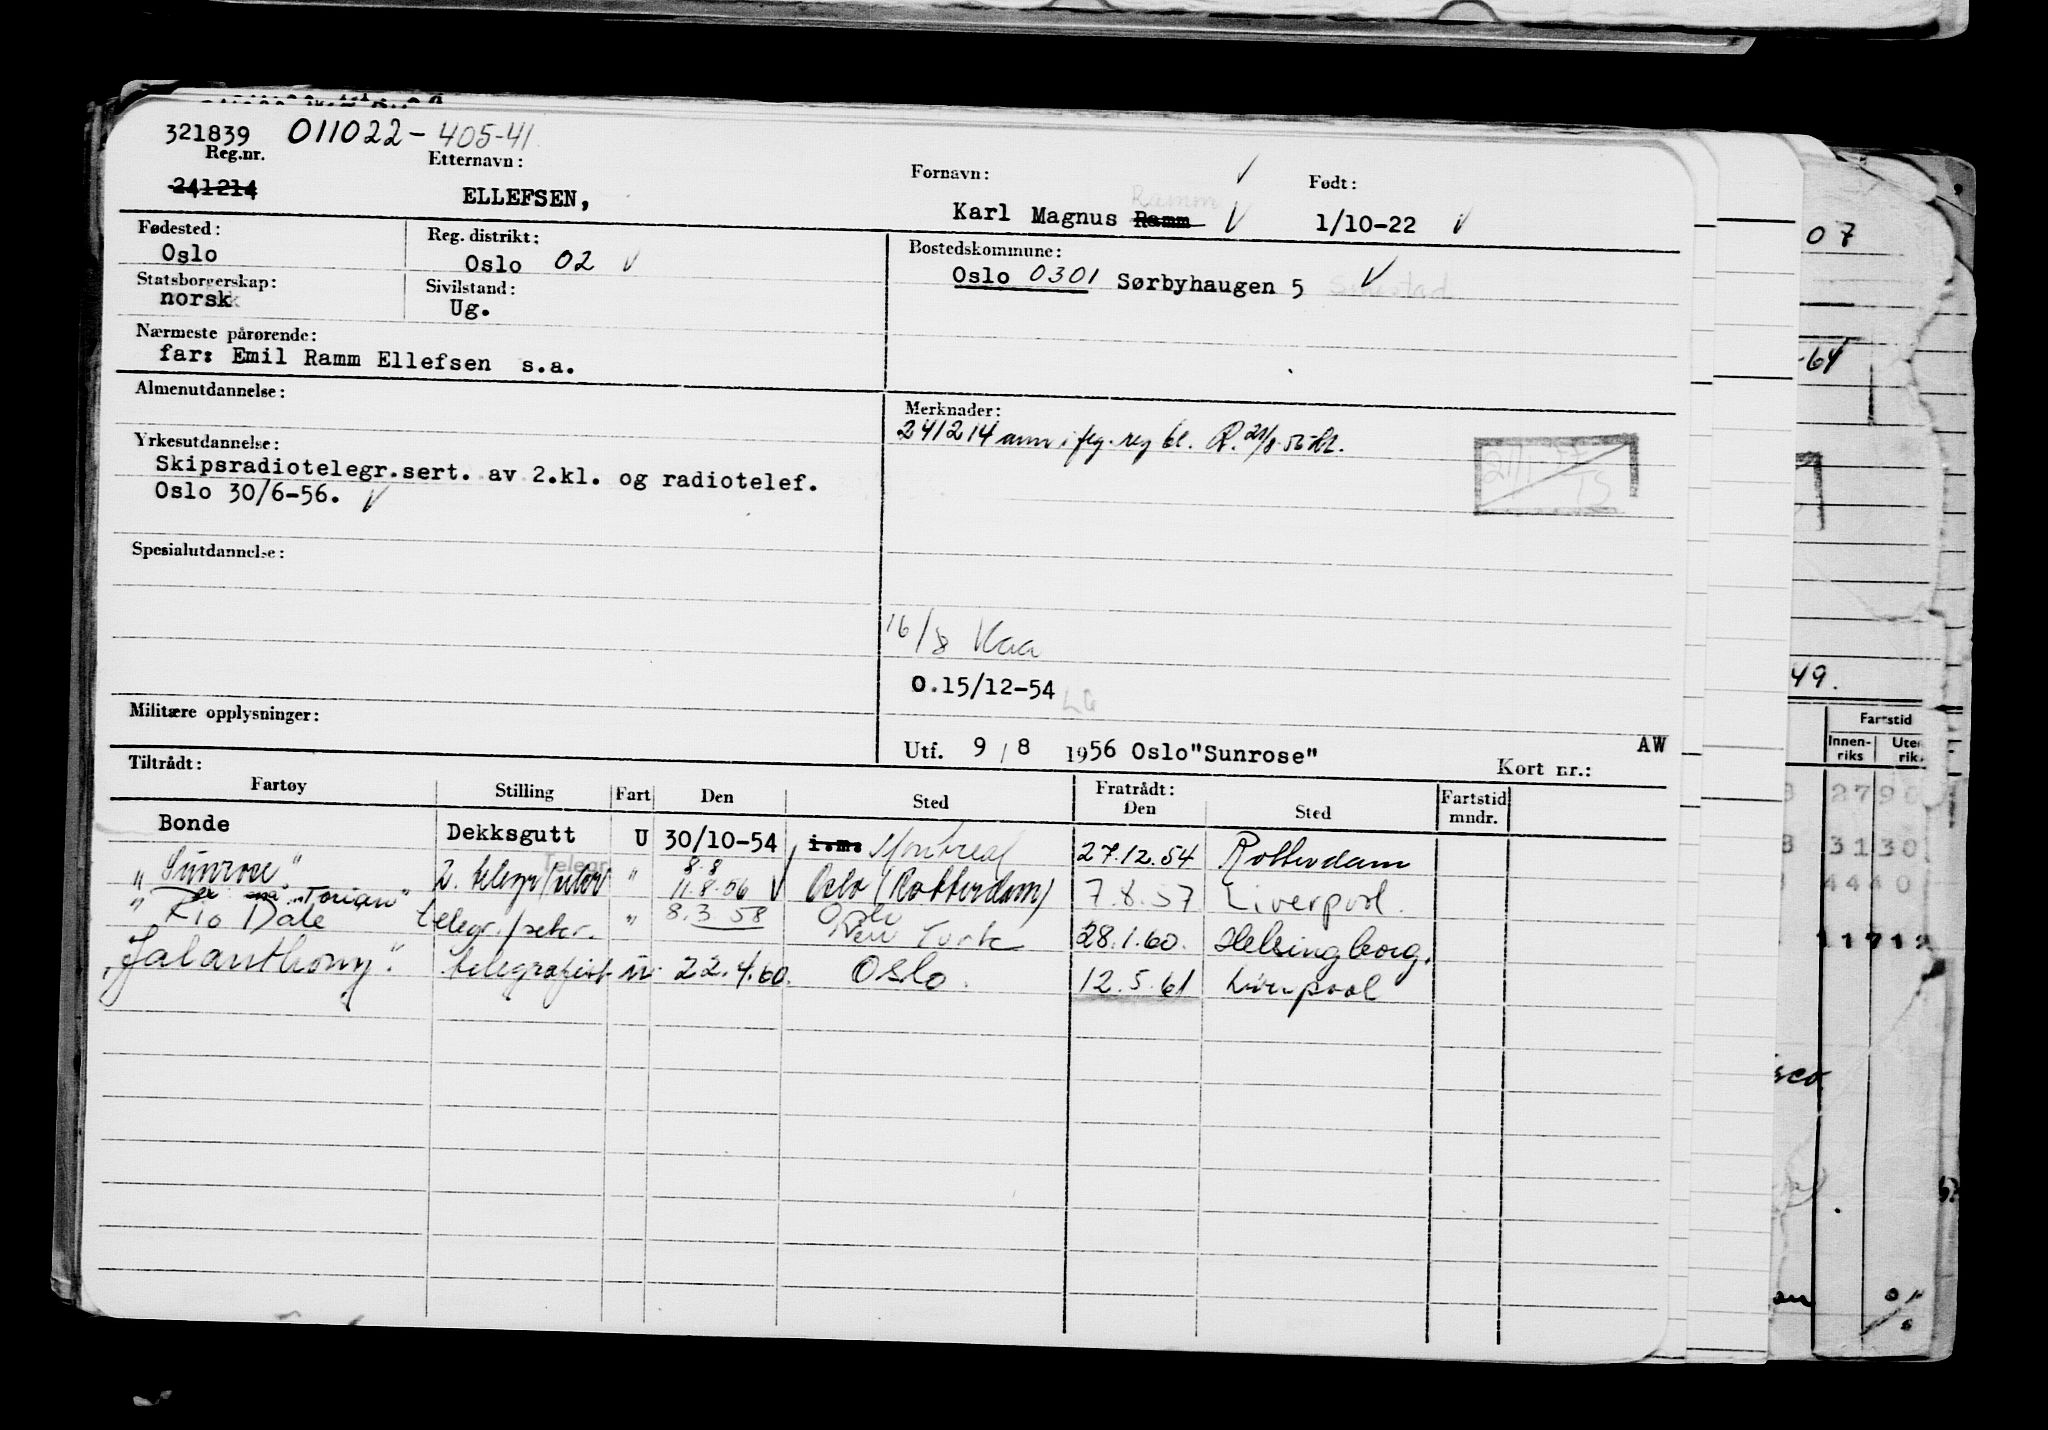 321839 011022-405-41
Reg.nr. Etternavn: Fornavn: Født:
241214 ELLEFSEN, Karl Magnus Ramm Ramm 1/10-22
Fødested: Reg. distrikt: Bostedskommune:
Oslo Oslo 02 Oslo 0301 Sørbyhaugen 5
Statsborgerskap: Sivilstand:
norsk Ug.
Nærmeste pårørende:
far: Emil Ramm Ellefsen s.a.
Almenutdannelse: Merknader:
241214 ann i flg. reg bl.
Yrkesutdannelse:
Skipsradiotelegr.sert. av 2.kl. og radiotelef.
Oslo 30/6-56.
Spesialutdannelse:
16/8 Kaa
O.15/12-54
Militære opplysninger:
Utf. 9/8 1956 Oslo "Sunrose" AW
Tiltrådt: Kort nr.:
Fartøy Stilling Fart Den Sted Fratrådt: Den Sted Fartstid mndr.
Bonde Dekksgutt U 30/10-54 i.m. Montreal 27.12.54 Rotterdam
"Sunrose" 2. telegr " 8.8 11.8.56 Oslo (Rotterdam) 7.8.57 Liverpool.
"Rio Dale Torian" telegr./sekr. " 8.3.58 Oslo New York 28.1.60. Helsingborg.
"Jalanthony". telegrafist u. 22.4.60. Oslo. 12.5.61 Liverpool
07
-64
49.
Fartstid
Innen-riks
2790
3130
4440
11712
sco